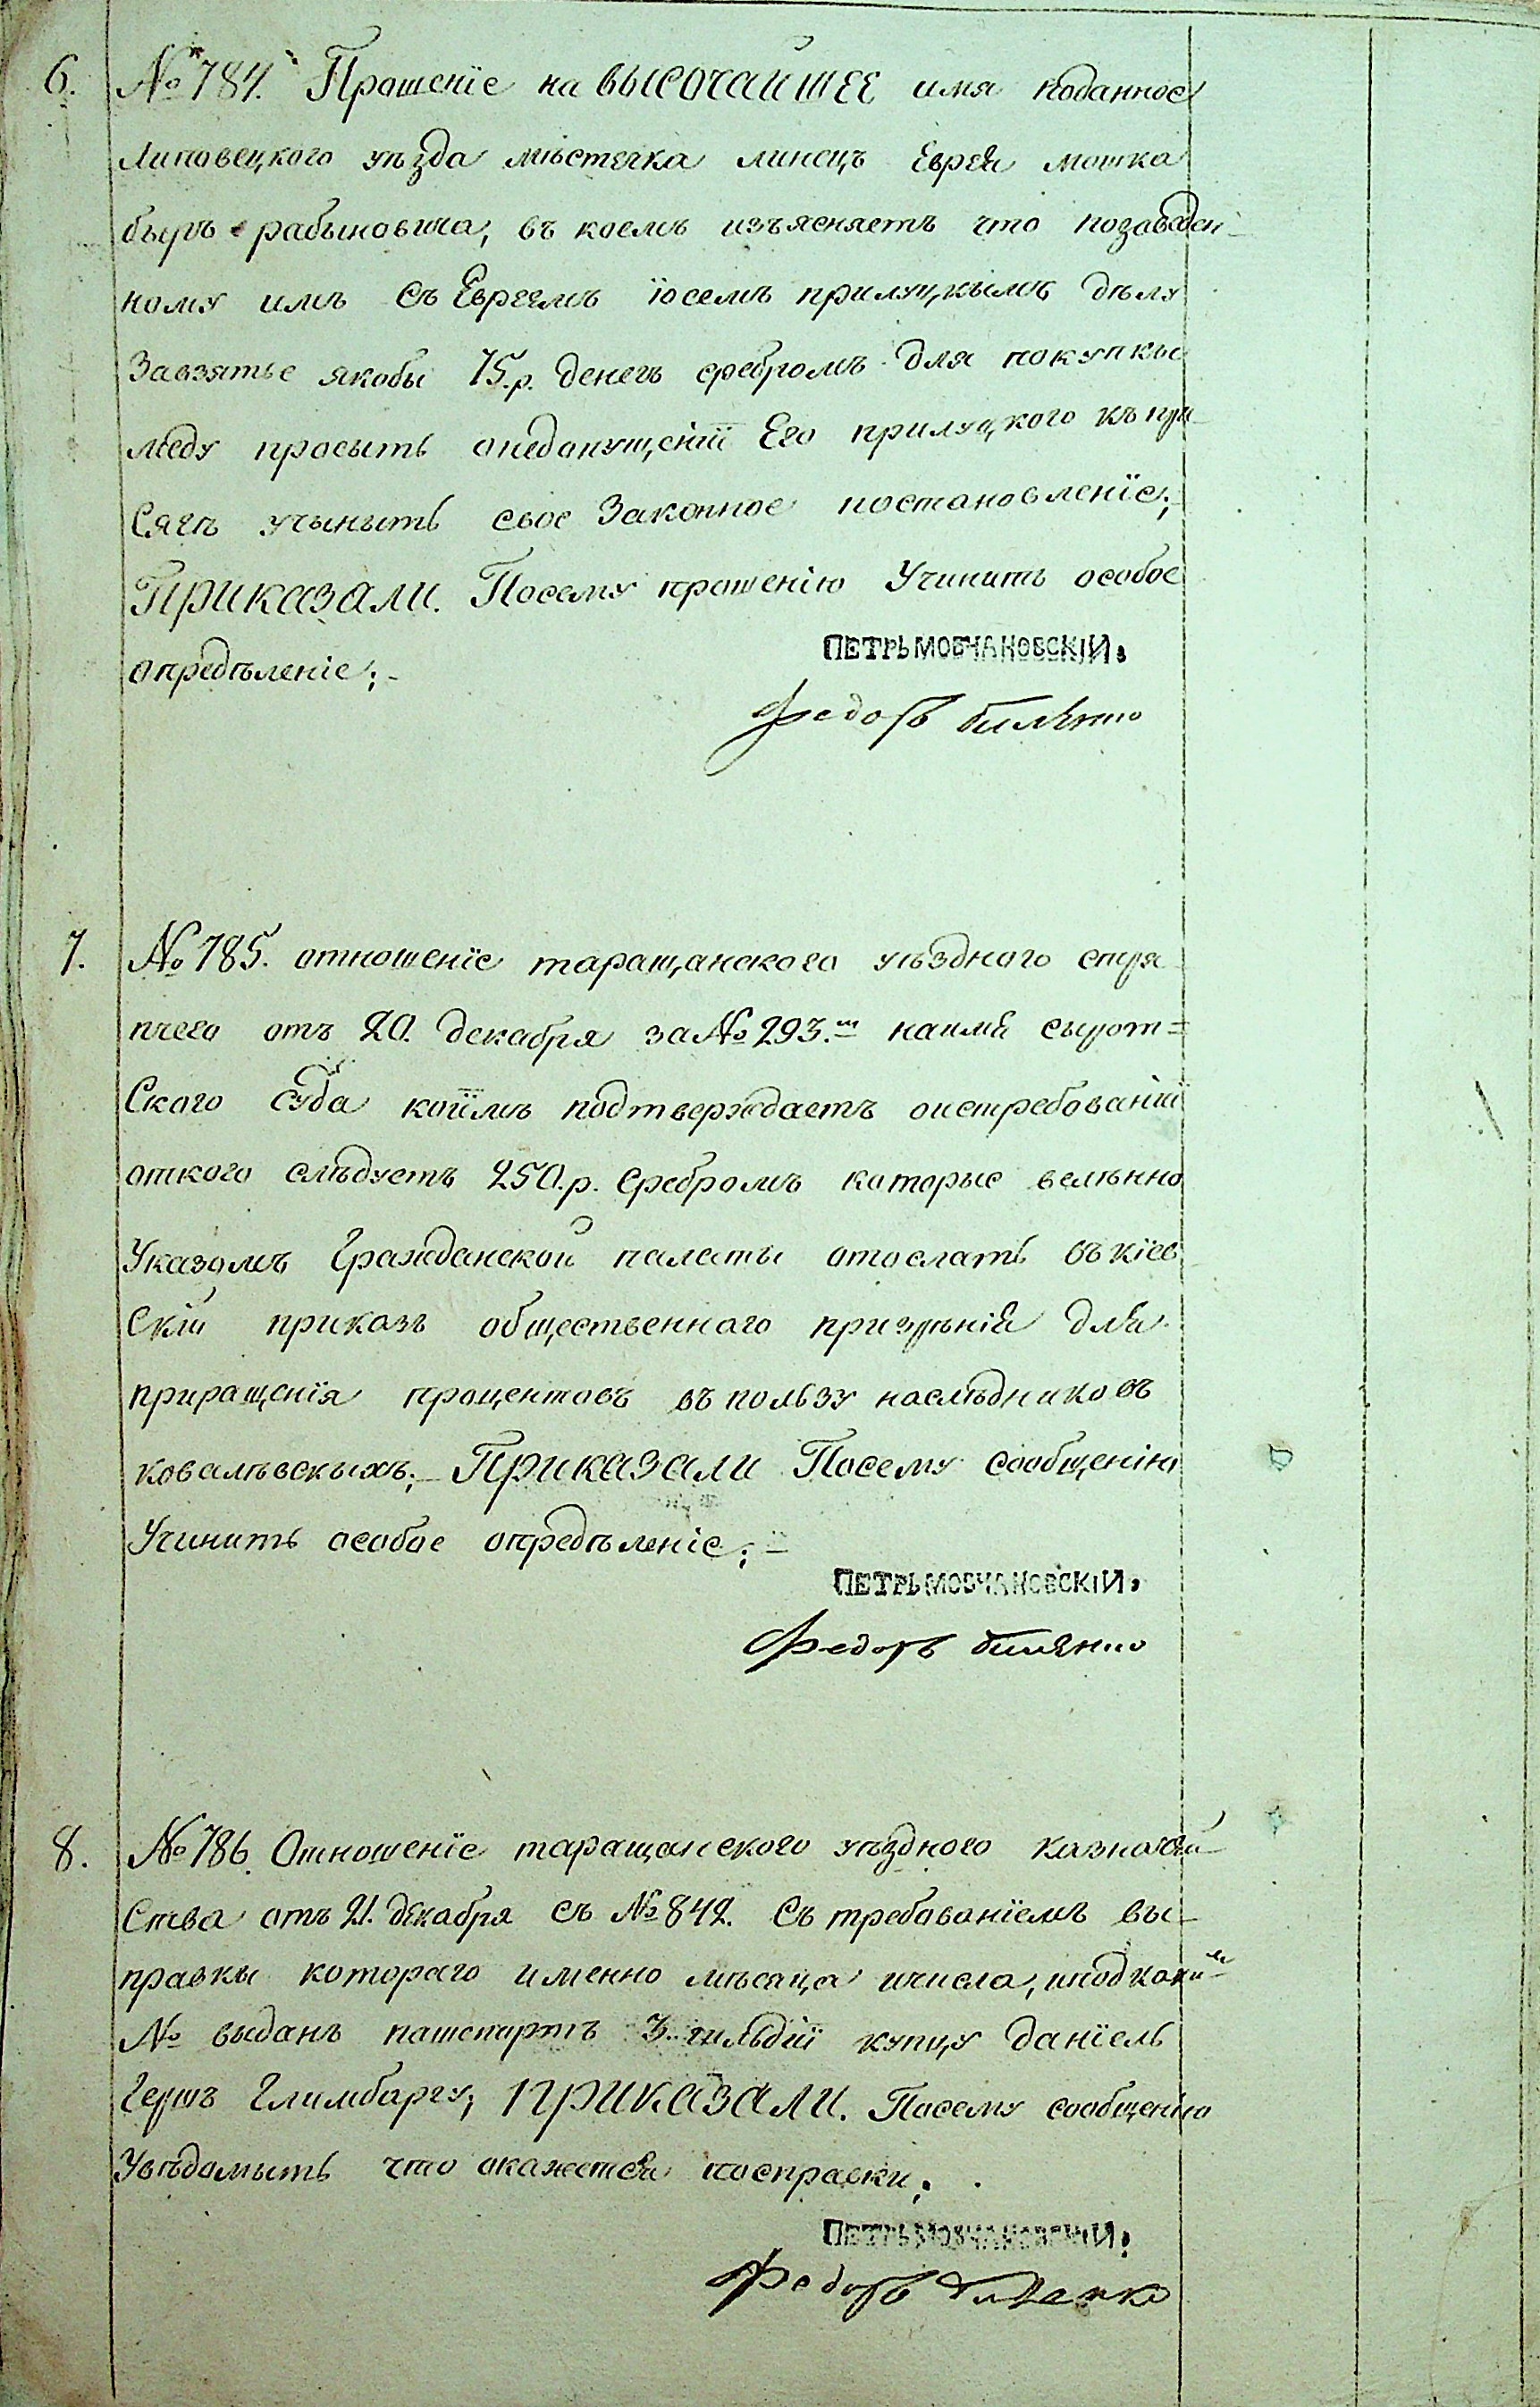 6. № 784. Прошенїе на ВЫСОЧАЙШЕЕ имя поданное
Липовецкого уѣзда мѣстечка линецъ Еврея мошка
беръ рабыновича, въ коемъ изъясняетъ что позаведен-
ному имъ съ Евреемъ їосемъ прилуцкымъ дѣлу
Завзятье якобы 75. р. денегъ сребромъ для покупкы
меду просыть онедопущенїи Его прилуцкого къ при-
сягѣ учыныть свое Законное постановленїе;
ПРИКАЗАЛИ. Посему прошенію Учинить особое
опредѣленіе;-
ПЕТРЬ МОВЧАНОВСКІИ.
Федоръ
7. № 785. отношенїе таращанского уѣздного стря-
пчего отъ 20. декабря за № 293.м наимя сырот=
Ского Суда коїмъ подтверждаетъ оистребованїи
откого слѣдуетъ 250. р. Сребромъ которые велѣнно
Указомъ Гражданской палаты отослать въ кїев
Скій приказъ общественнаго призрѣнія для
приращенїя процентовъ въ пользу наслѣдниковъ
ковалѣвскыхъ;- ПРИКАЗАЛИ Посему сообщенію
Учинить особое опредѣленіе;-
ПЕТРЬ МОВЧАНОВСКІИ.
Федоръ
8. № 786. Отношенїе таращанского уѣздного казначей-
Ства отъ 21. декабря съ № 842. Съ требованїемъ вы-
правкы котораго именно мѣсяца ичисла, иподкоим
№ выданъ пашпортъ 3. гильдїи купцу данїель
Гершъ Глимбаргу; ПРИКАЗАЛИ. Посему сообщенію
Увѣдомыть что окажется посправки;.
ПЕТРЬ МОВЧАНОВСКІИ.
Федоръ